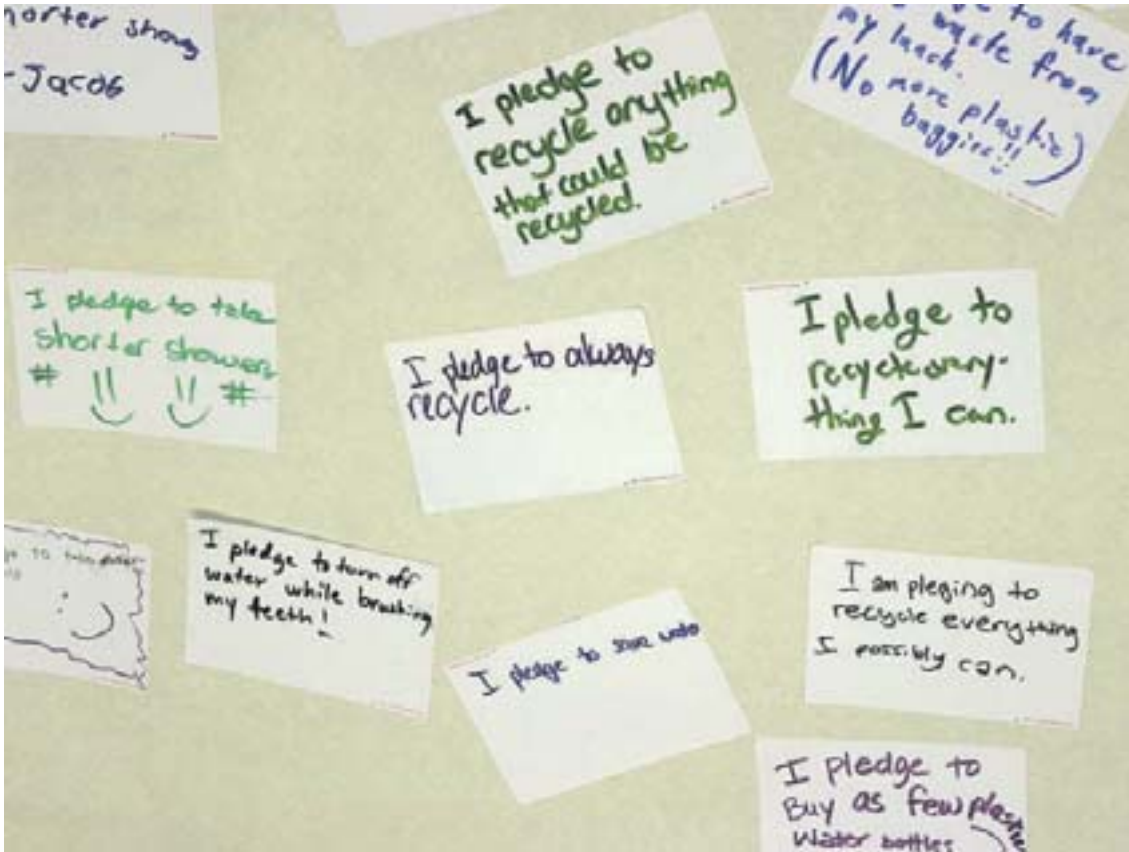 horter showers
-Jacob
I pledge to
recycle anything
that could be
recycled.
to have
waste from
my lunch.
(No more plastic
baggies!!)
I pledge to take
shorter showers
# #
I pledge to always
recycle.
I pledge to
recycle every-
thing I can.
I pledge to turn off
water while brushing
my teeth!
I pledge to save water
I am pleging to
recycle everything
I possibly can.
I pledge to
Buy as few plastic
Water bottles